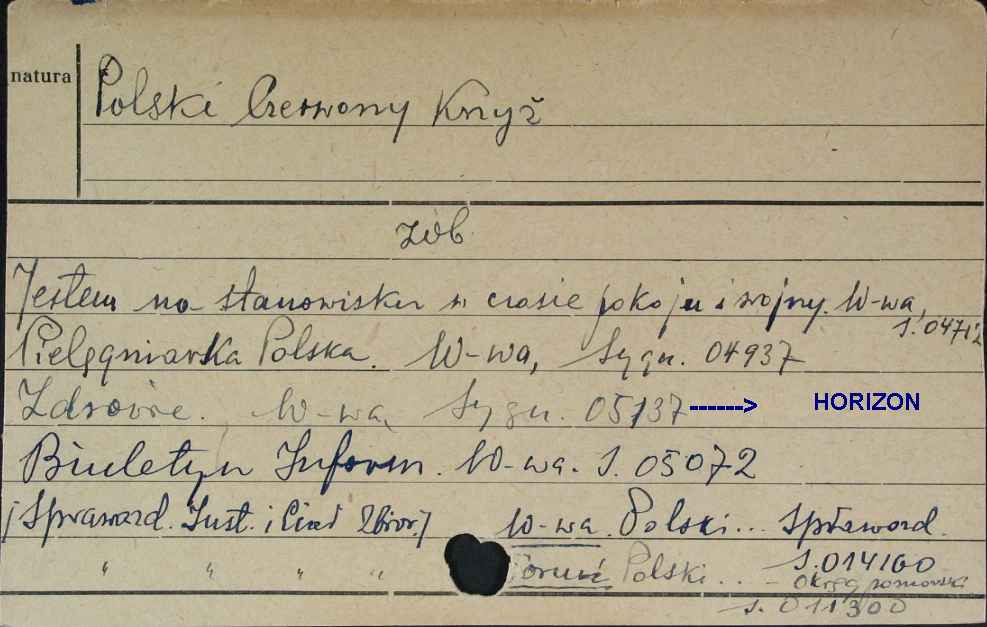 natura
Polski Czerwony Krzyż
zob.
Jestem na stanowisku w czasie pokoju i wojny. W-wa,
S. 04712
Pielęgniarka Polska. W-wa, Sygn. 04937
Zdrowie. W-wa, Sygn. 05137 ------> HORIZON
Biuletyn Inform. W-wa. S. 05072
[Spraword. Inst. i Ciał Zbior.] W-wa. Polski... Spraword.
S. 014160
" " " " Toruń Polski... - Okręg pomorski
S. 011300